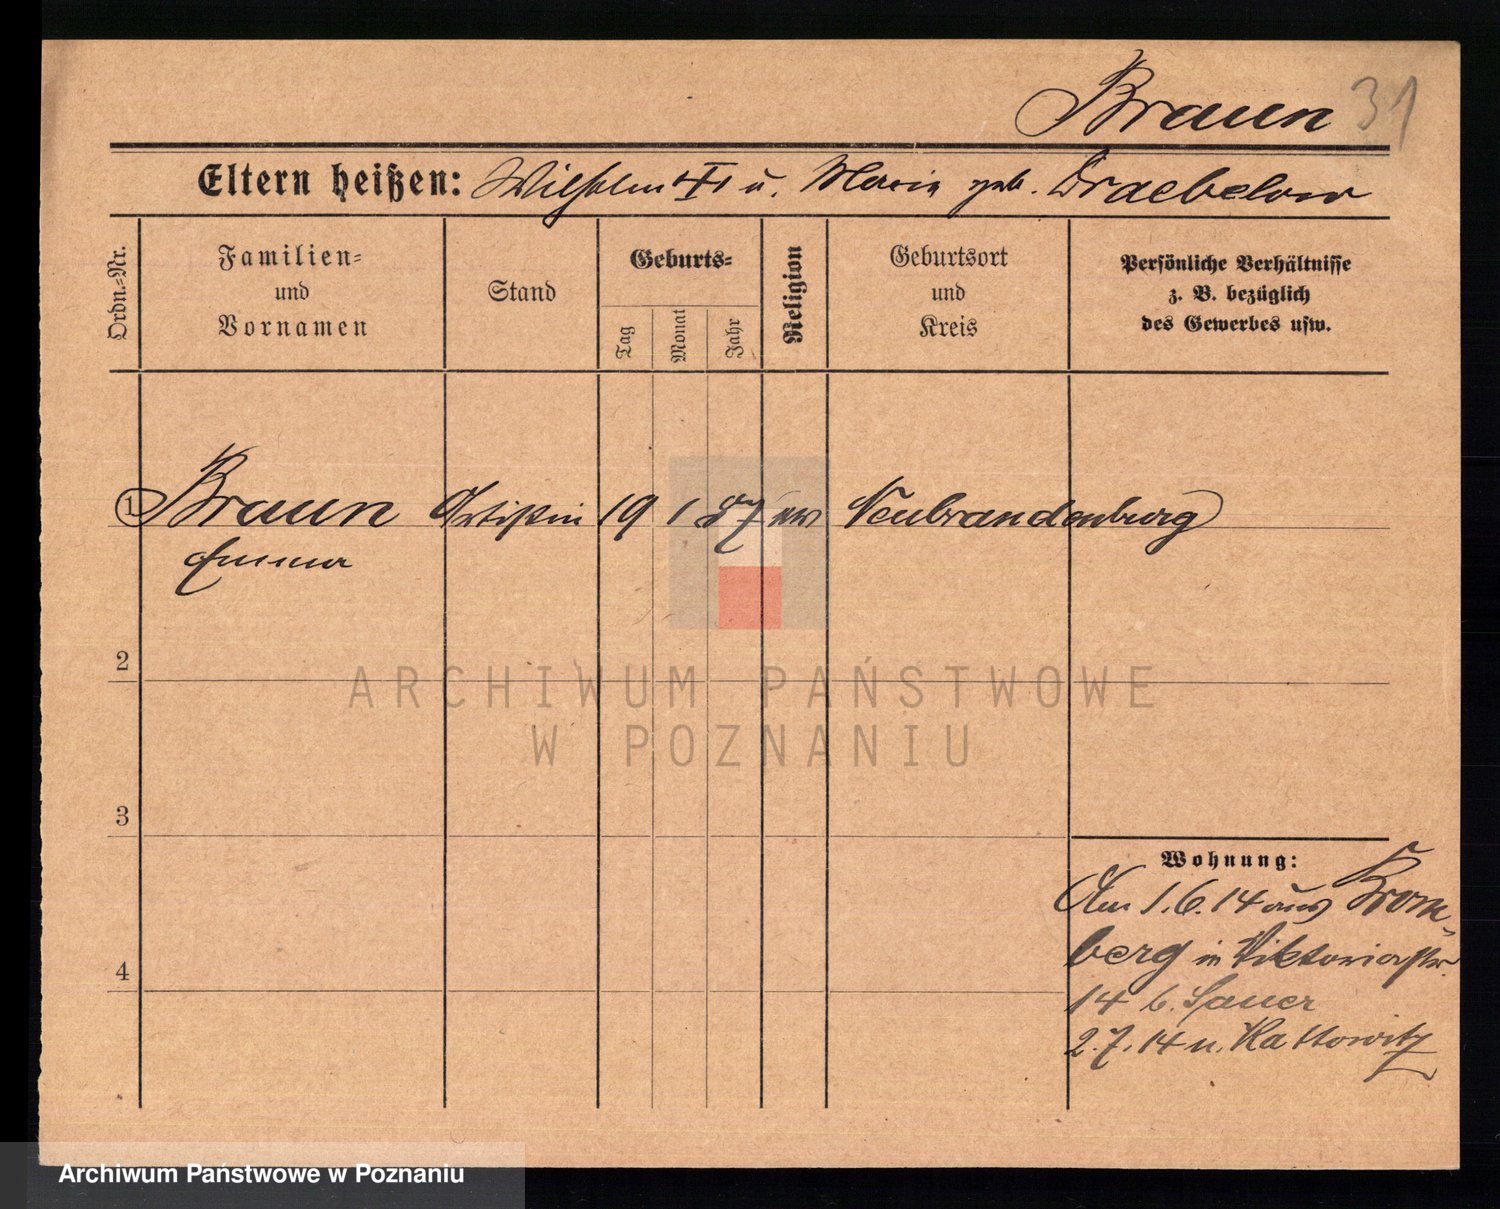 Braun 31
Eltern heißen: Wilhelm u. Maria geb. Draebelow
Ordn.-Nr.
Familien-
und
Vornamen
Stand
Geburts-
Tag
Monat
Jahr
Religion
Geburtsort
und
Kreis
Persönliche Verhältnisse
z. B. bezüglich
des Gewerbes usw.
1 Braun Artistin 19 1 87 ev Neubrandenburg
Emma
2
ARCHIWUM PAŃSTWOWE
W POZNANIU
3
Wohnung:
Am 1.6.14 aus Brom-
berg in Viktoriastr.
4
14 b. Sauer
2.7.14 n. Kattowitz
Archiwum Państwowe w Poznaniu